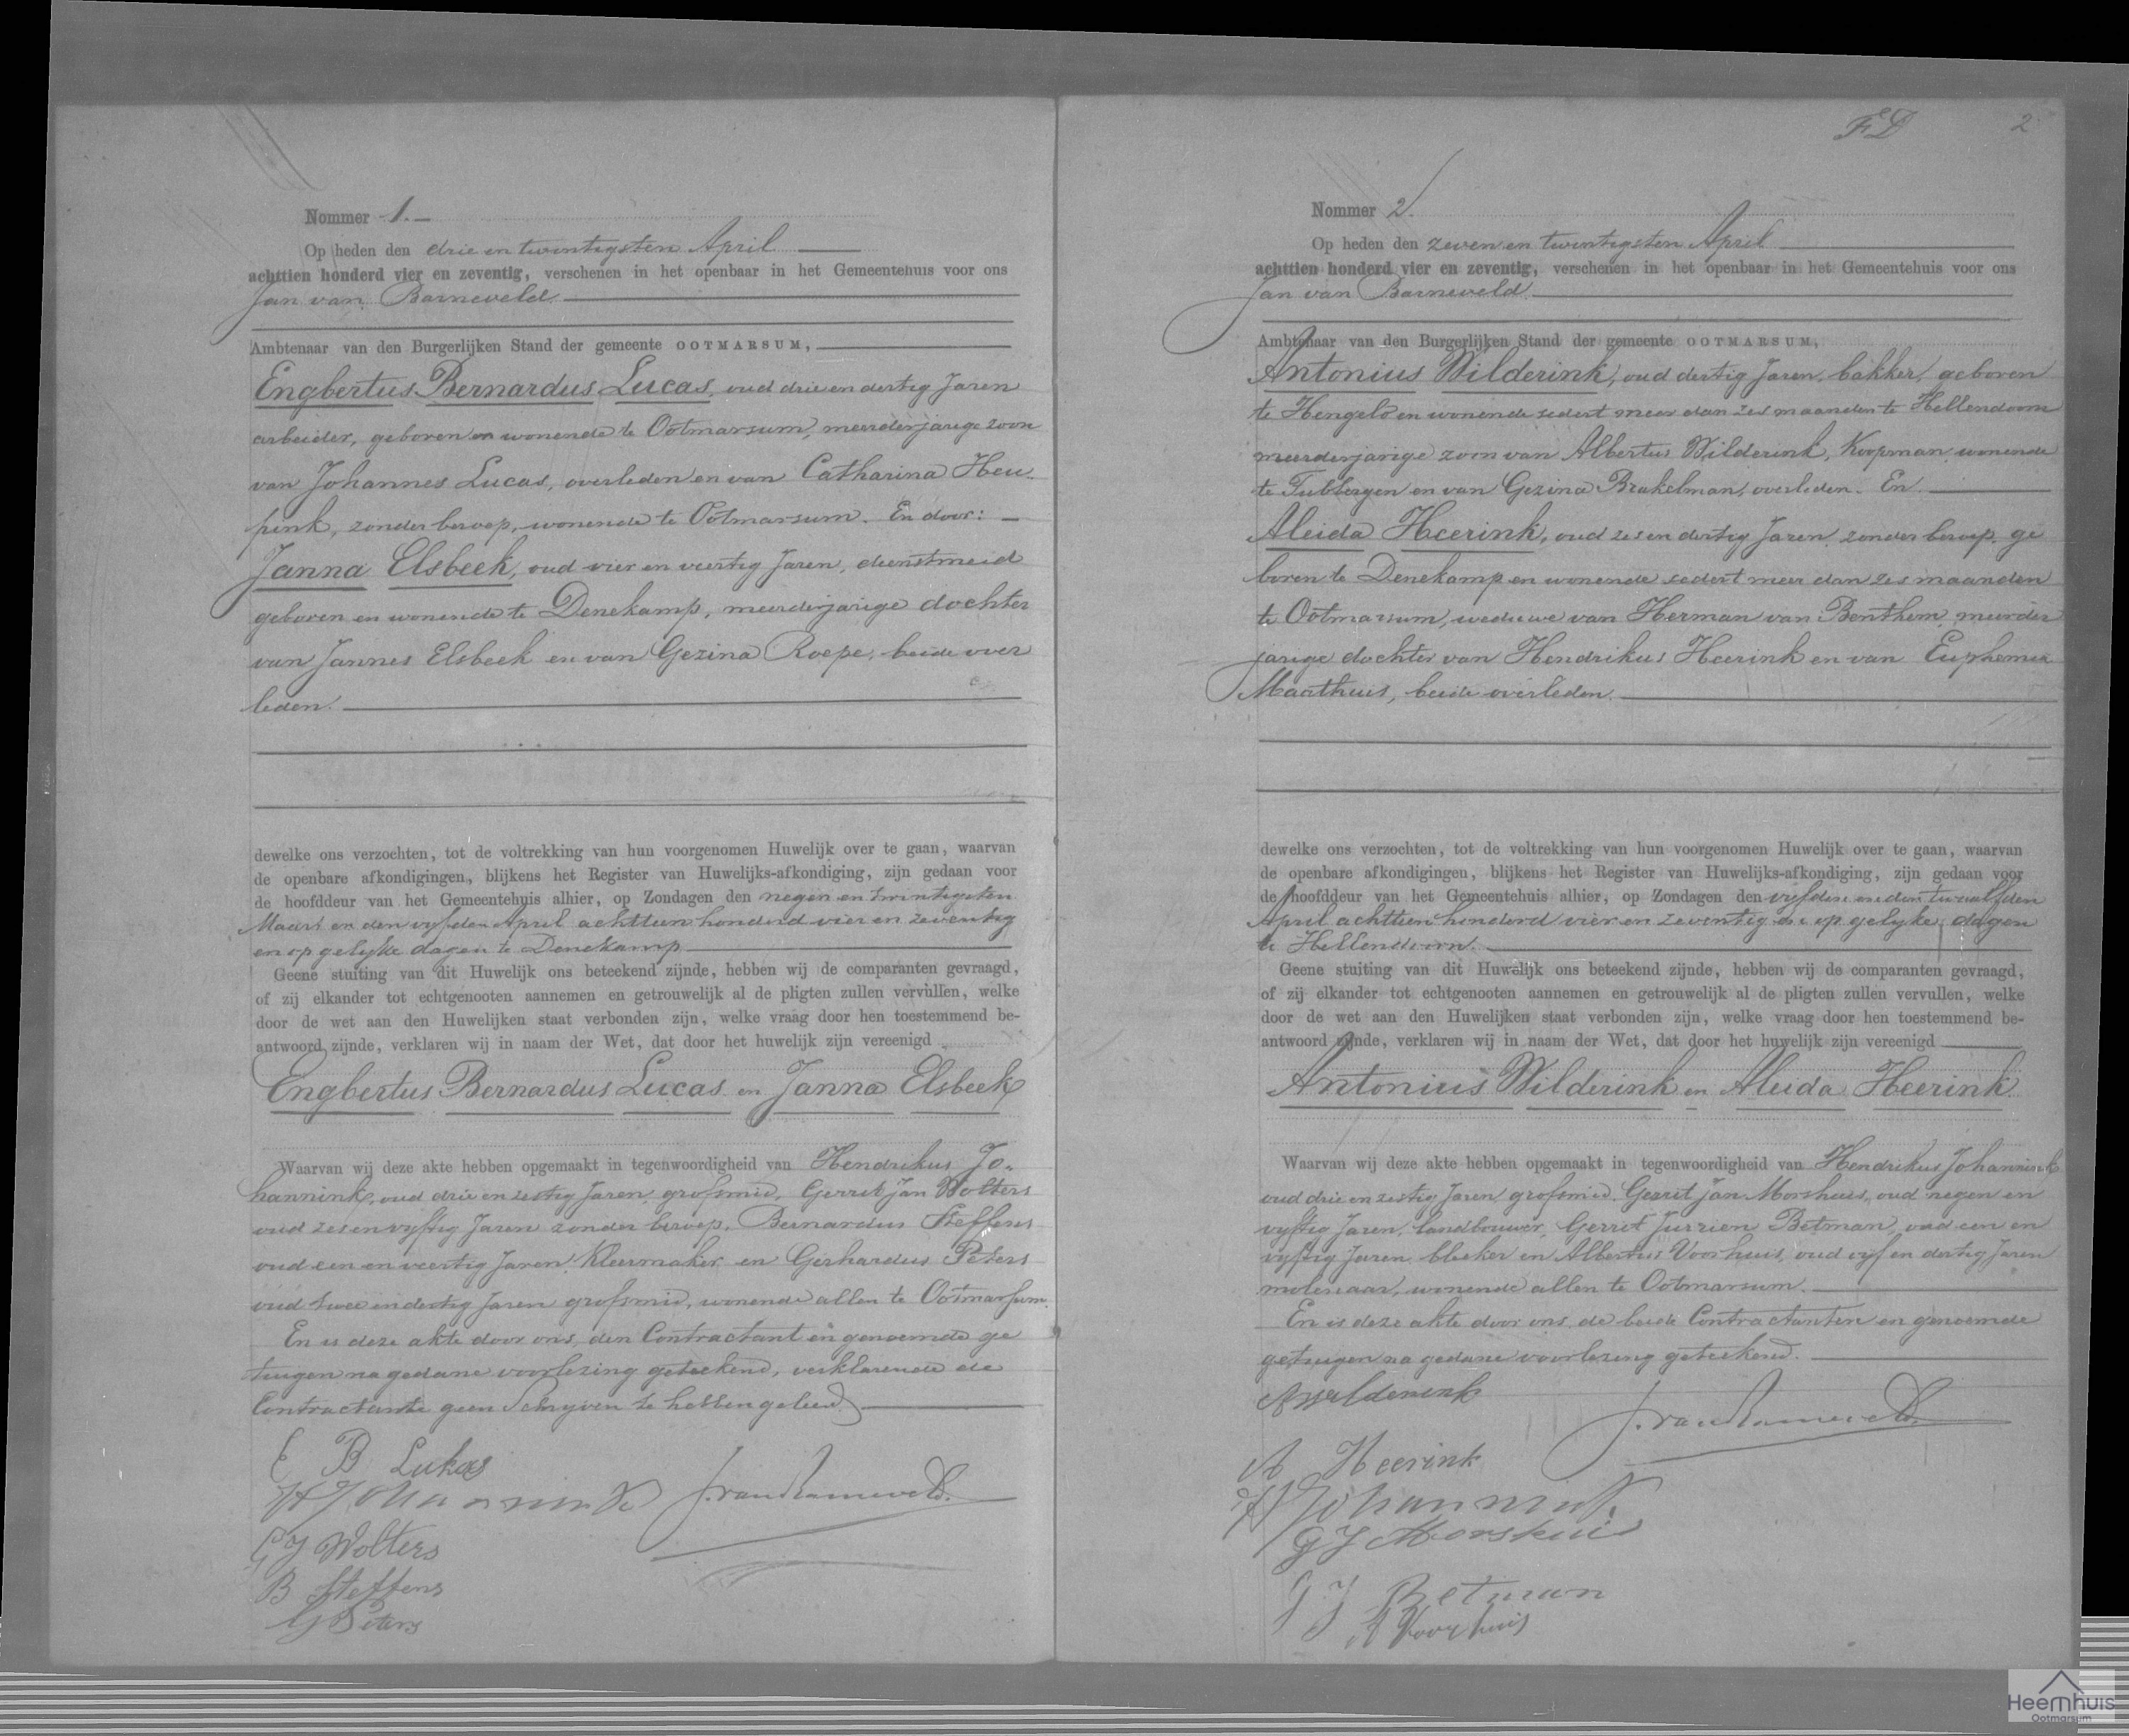 Nommer 1.
Op heden den drie en twintigsten April
achttien honderd vier en zeventig, verschenen in het openbaar in het Gemeentehuis voor ons
Jan van Barneveld
Ambtenaar van den Burgerlijken Stand der gemeente OOTMARSUM,
Engbertus Bernardus Lucas, oud drie en dertig Jaren
arbeider, geboren en wonende te Ootmarsum, meerderjarige zoon
van Johannes Lucas, overleden en van Catharina Heu-
pink, zonder beroep, wonende te Ootmarsum. En door:
Janna Elsbeek, oud vier en veertig Jaren, dienstmeid
geboren en wonende te Denekamp, meerderjarige dochter
van Jannes Elsbeek en van Gezina Roepe, beide over
leden.
dewelke ons verzochten, tot de voltrekking van hun voorgenomen Huwelijk over te gaan, waarvan
de openbare afkondigingen, blijkens het Register van Huwelijks-afkondiging, zijn gedaan voor
de hoofddeur van het Gemeentehuis alhier, op Zondagen den negen en twintigsten
Maart en den vyfden April achttien honderd vier en zeventig
en op gelyke dagen te Denekamp
Geene stuiting van dit Huwelijk ons beteekend zijnde, hebben wij de comparanten gevraagd,
of zij elkander tot echtgenooten aannemen en getrouwelijk al de pligten zullen vervullen, welke
door de wet aan den Huwelijken staat verbonden zijn, welke vraag door hen toestemmend be-
antwoord zijnde, verklaren wij in naam der Wet, dat door het huwelijk zijn vereenigd
Engbertus Bernardus Lucas en Janna Elsbeek
Waarvan wij deze akte hebben opgemaakt in tegenwoordigheid van Hendrikus Jo-
hannink, oud drie en zestig Jaren, grofsmid, Gerrit Jan Wolters
oud zes en vyftig Jaren zonder beroep, Bernardus Steffens
oud een en veertig Jaren, Kleermaker en Gerhardus Peters
oud twee en dertig Jaren grofsmid, wonende allen te Ootmarsum.
En is deze akte door ons, den Contractant en genoemde ge
tuigen na gedane voorlezing geteekend, verklarende de
Contractante geen Schryven te hebben geleerd
E B Lukas
H Johannink J. van Barneveld.
G J Wolters
B Steffens
G Peters
F D 2
Nommer 2.
Op heden den zeven en twintigsten April
achttien honderd vier en zeventig, verschenen in het openbaar in het Gemeentehuis voor ons
Jan van Barneveld
Ambtenaar van den Burgerlijken Stand der gemeente OOTMARSUM,
Antonius Wilderink, oud dertig Jaren, bakker, geboren
te Hengelo en wonende sedert meer dan zes maanden te Hellendoorn
meerderjarige zoon van Albertus Wilderink, Koopman, wonende
te Tubbergen en van Gezina Brakelman, overleden. En
Aleida Heerink, oud zes en dertig Jaren, zonder beroep, ge
boren te Denekamp en wonende sedert meer dan zes maanden
te Ootmarsum, weduwe van Herman van Benthem, meerder
jarige dochter van Hendrikus Heerink en van Euphemia
Maathuis, beide overleden.
dewelke ons verzochten, tot de voltrekking van hun voorgenomen Huwelijk over te gaan, waarvan
de openbare afkondigingen, blijkens het Register van Huwelijks-afkondiging, zijn gedaan voor
de hoofddeur van het Gemeentehuis alhier, op Zondagen den vyfden en den twaalfden
April achttien honderd vier en zeventig en op gelyke dagen
te Hellendoorn.
Geene stuiting van dit Huwelijk ons beteekend zijnde, hebben wij de comparanten gevraagd,
of zij elkander tot echtgenooten aannemen en getrouwelijk al de pligten zullen vervullen, welke
door de wet aan den Huwelijken staat verbonden zijn, welke vraag door hen toestemmend be-
antwoord zijnde, verklaren wij in naam der Wet, dat door het huwelijk zijn vereenigd
Antonius Wilderink en Aleida Heerink.
Waarvan wij deze akte hebben opgemaakt in tegenwoordigheid van Hendrikus Johannink
oud drie en zestig Jaren, grofsmid, Gerrit Jan Morshuis, oud negen en
vyftig Jaren, landbouwer, Gerrit Jurrien Betman, oud een en
vyftig Jaren, bleeker en Albertus Voorhuis, oud vyf en dertig Jaren
molenaar, wonende allen te Ootmarsum.
En is deze akte door ons, de beide Contractanten en genoemde
getuigen na gedane voorlezing geteekend.
A Wilderink
J. van Barneveld.
A Heerink
H Johannink
G J Morshuis
G J Betman
A Voorhuis
Heemhuis
Ootmarsum